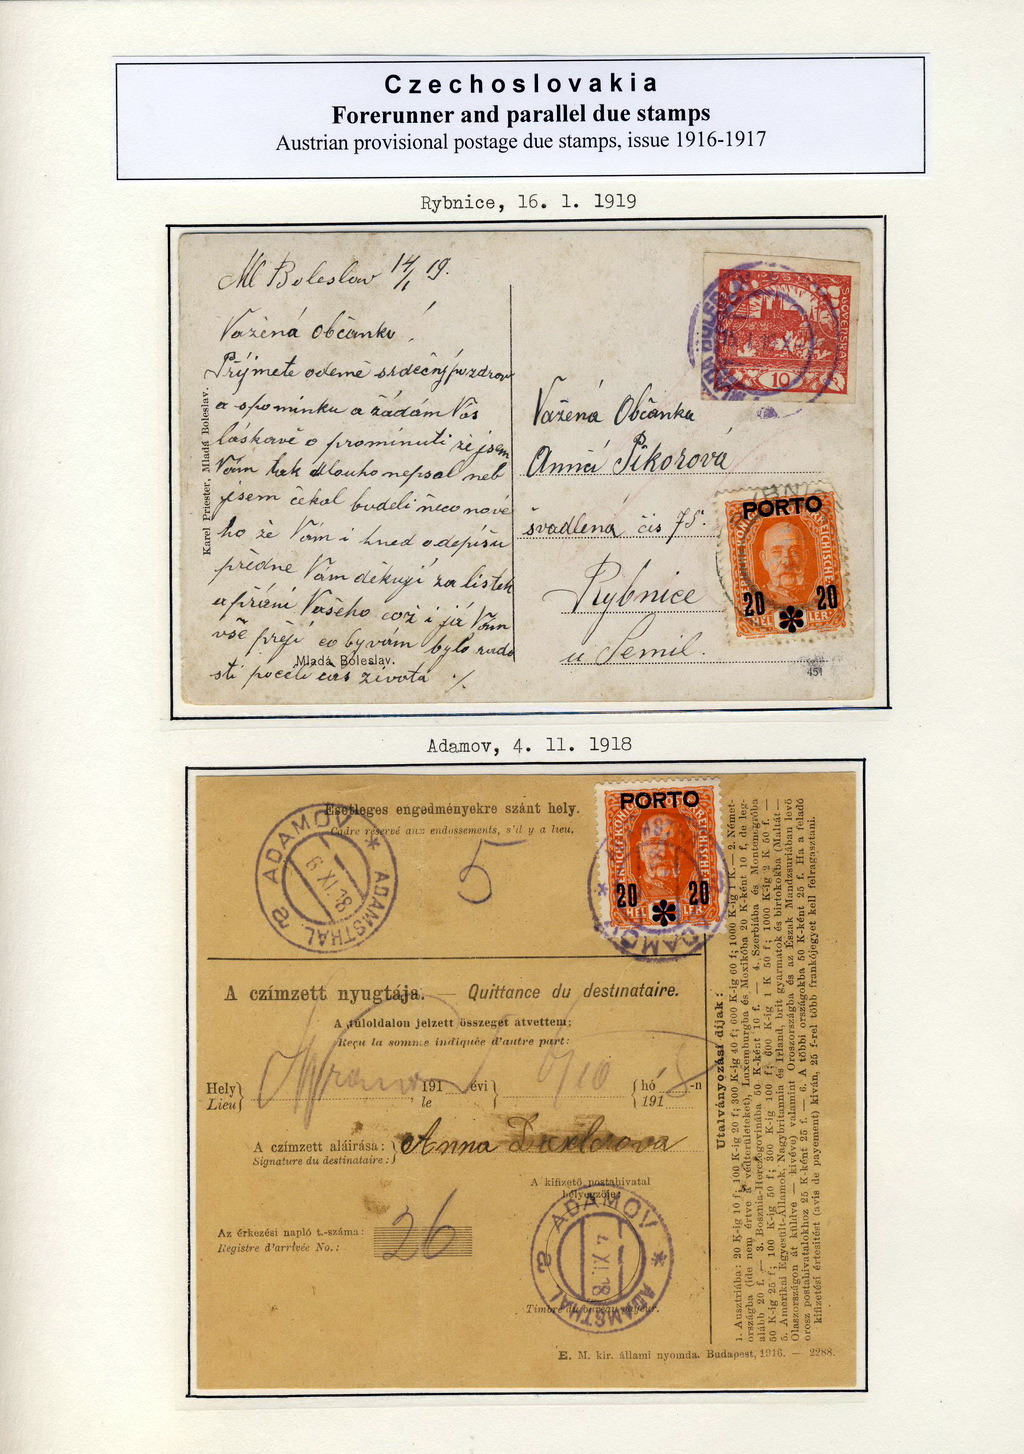 Czechoslovakia
Forerunner and parallel due stamps
Austrian provisional postage due stamps, issue 1916-1917
Rybnice, 16. 1. 1919
Ml Boleslav 14/1 19.
Vážená občanko!
Přijmete odemě srdečný pozdrav
a spomínku a žádám Vás
láskavě o prominuti že jsem
Vám tak dlouho nepsal neb
jsem čekal budeli něco nové
ho že Vám i hned odepíšu
předně Vám děkuji za lístek
a přání Vašeho což i já Vám
vše přeji co by vám bylo rado
sti po celi čas života
Mladá Boleslav.
Karel Priester, Mladá Boleslav.
10
Vážená Občanka
Anna Pikorova
švadlena čis 75.
Rybnice
u Semil.
PORTO
20 20
HEL LER
451
Adamov, 4. 11. 1918
Esetleges engedményekre szánt hely.
Cadre réservé aux endossements, s'il y a lieu.
ADAMOV
6 XI. 18
ADAMSTHAL
5
PORTO
20 20
HEL LER
ADAMOV
A czímzett nyugtája. — Quittance du destinataire.
A túloldalon jelzett összeget átvettem:
Reçu la somme indiquée d'autre part:
Hely 191 évi hó -n
Lieu le 191
A czímzett aláirása: Anna
Signature du destinataire:
A kifizető postahivatal
helybélyegzője:
ADAMOV
4. XI. 18
ADAMSTHAL
Az érkezési napló t.-száma: 26
Registre d'arrivée No.:
Timbre du bureau payeur.
Utalványozási díjak:
1. Ausztriába: 20 K-ig 10 f; 100 K-ig 20 f; 300 K-ig 40 f; 600 K-ig 60 f; 1000 K-ig 1 K. — 2. Német-
országba (ide nem értve a védterületeket), Luxemburgba és Mexikóba 20 K-ként 10 f, de leg-
alább 20 f. — 3. Bosznia-Herczegovinába 50 K-ként 10 f. — 4. Szerbiába és Montenegróba
50 K-ig 25 f; 100 K-ig 50 f; 300 K-ig 100 f; 600 K-ig 1 K 50 f; 1000 K-ig 2 K 50 f. —
5. Amerikai Egyesült-Államok, Nagybritannia és Irland, brit gyarmatok és birtokokba (Maltát —
Olaszországon át küldve — kivéve) valamint Oroszországba és az Észak Mandzsuriában levő
orosz postahivatalokhoz 25 K-ként 25 f. — 6. A többi országokba 50 K-ként 25 f. Ha a feladó
kifizetési értesítést (avis de payement) kíván, 25 f-rel több frankójegyet kell felragasztani.
E. M. kir. állami nyomda. Budapest, 1916. — 2288.